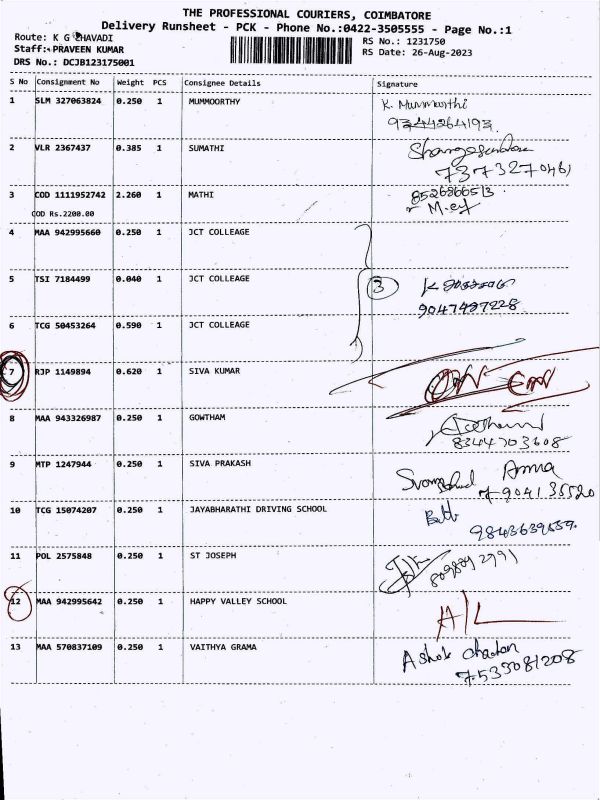 THE PROFESSIONAL COURIERS, COIMBATORE
Delivery Runsheet - PCK - Phone No.:0422-3505555 - Page No.:1
Route: K G CHAVADI
RS No.: 1231750
Staff: PRAVEEN KUMAR
RS Date: 26-Aug-2023
DRS No.: DCJB123175001
S No Consignment No Weight PCS Consignee Details Signature
1 SLM 327063824 0.250 1 MUMMOORTHY K. Mummoorthi
9344264193
2 VLR 2367437 0.385 1 SUMATHI
7373270461
3 COD 1111952742 2.260 1 MATHI 8526866513
COD Rs.2200.00
4 MAA 942995660 0.250 1 JCT COLLEAGE
5 TSI 7184499 0.040 1 JCT COLLEAGE 3
9047497228
6 TCG 50453264 0.590 1 JCT COLLEAGE
7 RJP 1149894 0.620 1 SIVA KUMAR
8 MAA 943326987 0.250 1 GOWTHAM
8344703608
9 MTP 1247944 0.250 1 SIVA PRAKASH Amma
904135520
10 TCG 15074207 0.250 1 JAYABHARATHI DRIVING SCHOOL
9843639659
11 POL 2575848 0.250 1 ST JOSEPH
12 MAA 942995642 0.250 1 HAPPY VALLEY SCHOOL A/L
13 MAA 570837109 0.250 1 VAITHYA GRAMA Ashok
7533081208